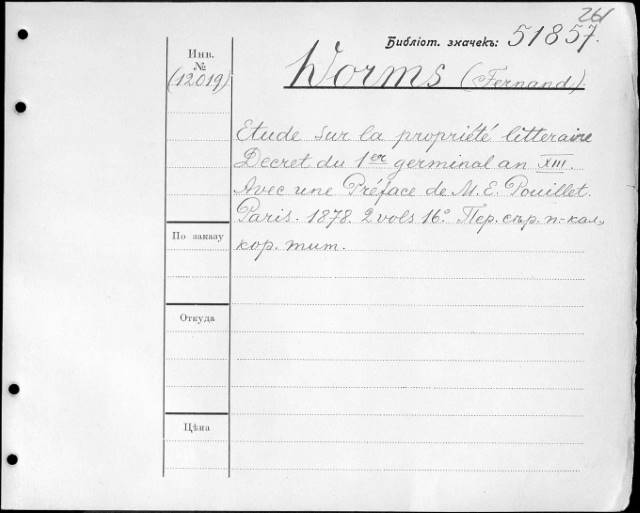 261
Библіот. значекъ: 51857.
Инв.
№
(12019)
Worms (Fernand)
Etude sur la propriété litteraire
Decret du 1er germinal an XIII.
Avec une Préface de M. E. Pouillet.
Paris. 1878. 2 vols 16° Пер. сѣр. п-кал,
кор. тит.
По заказу
Откуда
Цѣна